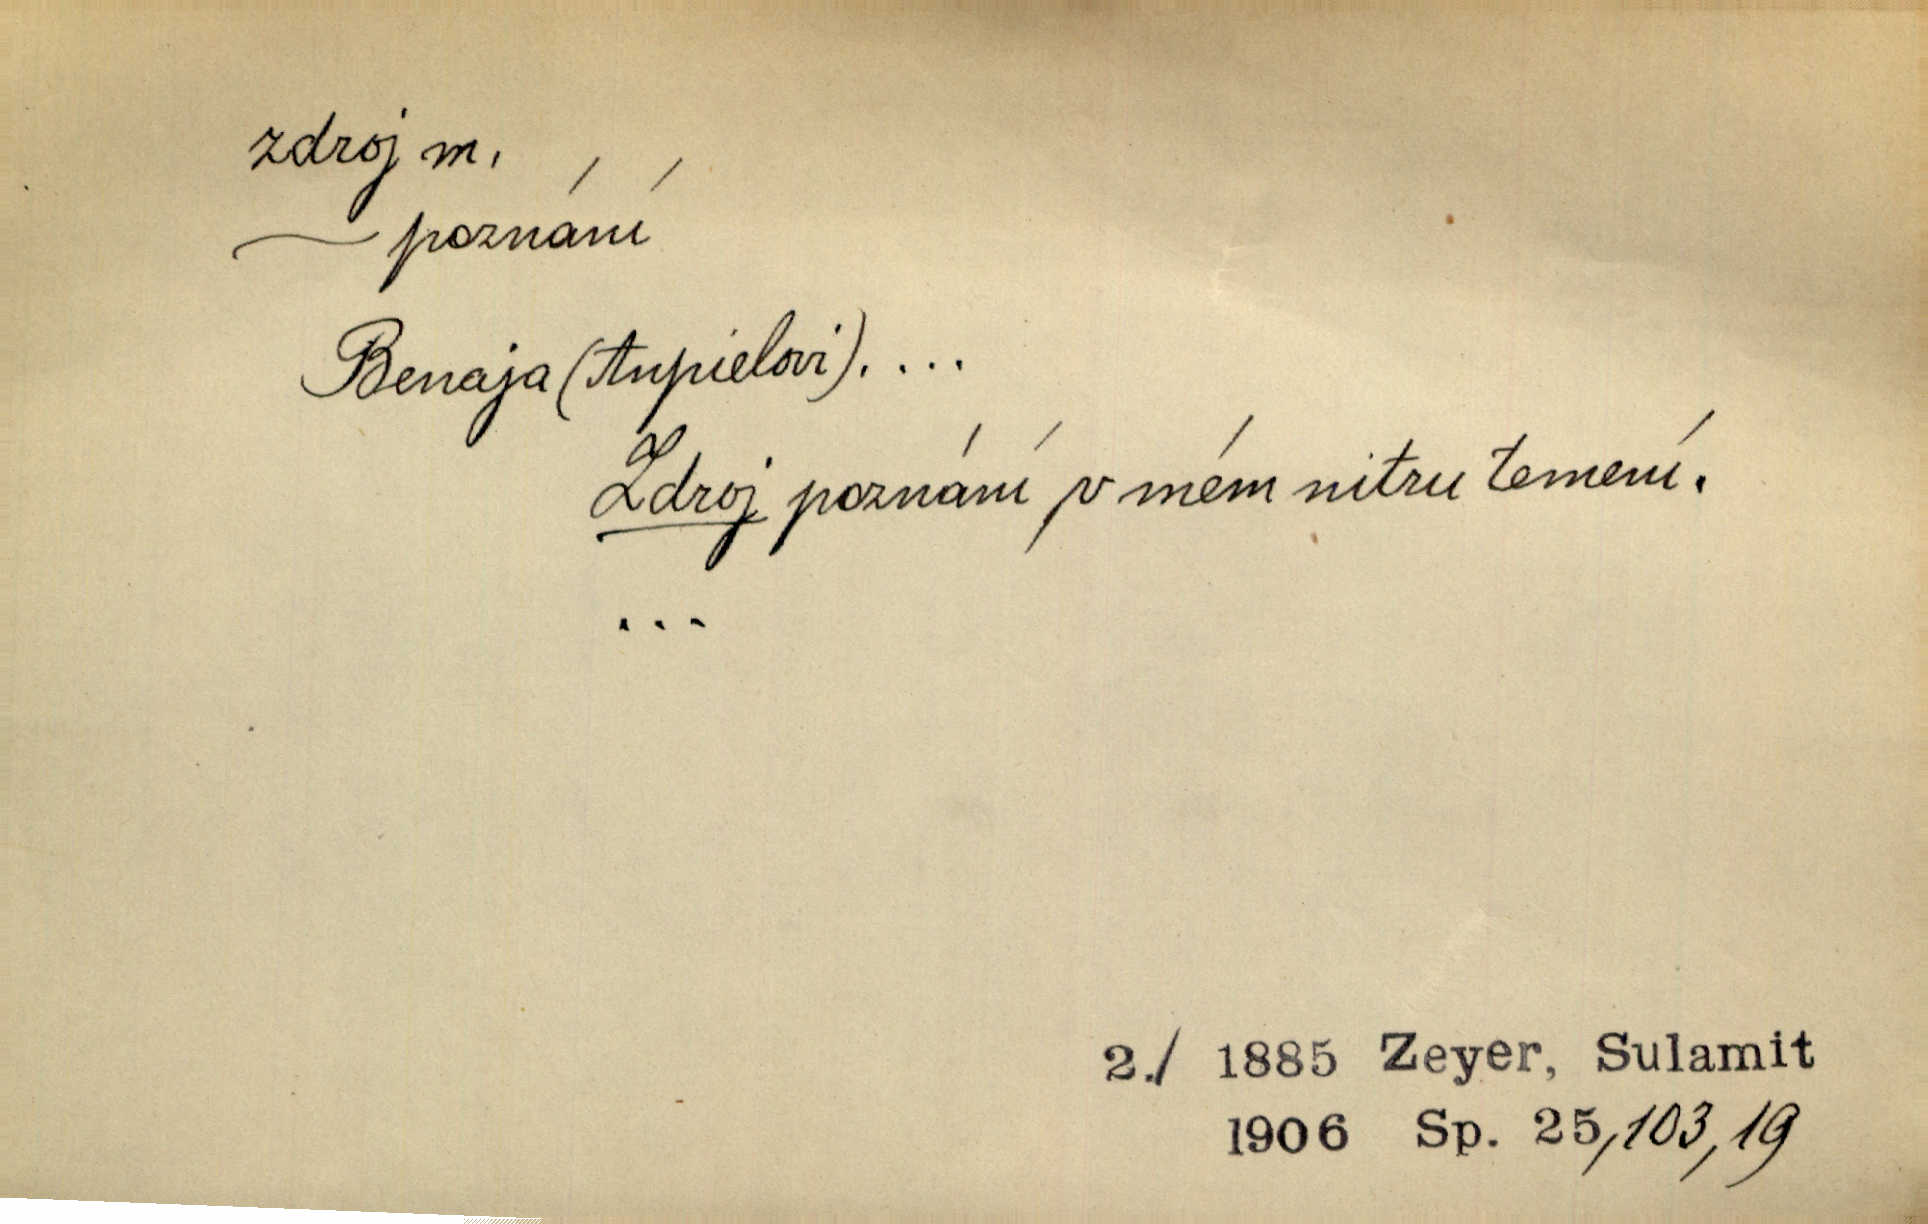 zdroj m.
— poznání
Benaja (Anpielovi). ...
Zdroj poznání v mém nitru temení.
...
2./ 1885 Zeyer, Sulamit
1906 Sp. 25,103,19